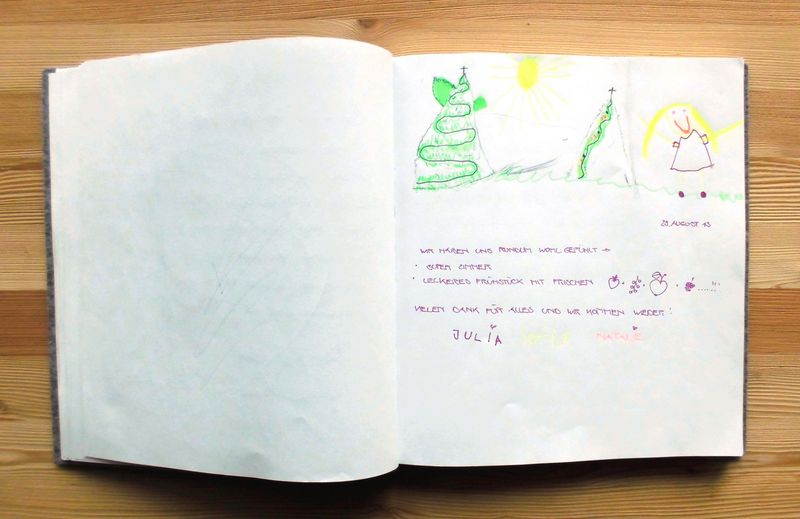 29. AUGUST 13
WIR HABEN UNS RUNDUM WOHL GEFÜHLT →
· SUPER ZIMMER
· LECKERES FRÜHSTÜCK MIT FRISCHEN
VIELEN DANK FÜR ALLES UND WIR KOMMEN WIEDER!
JULIA NATALIE